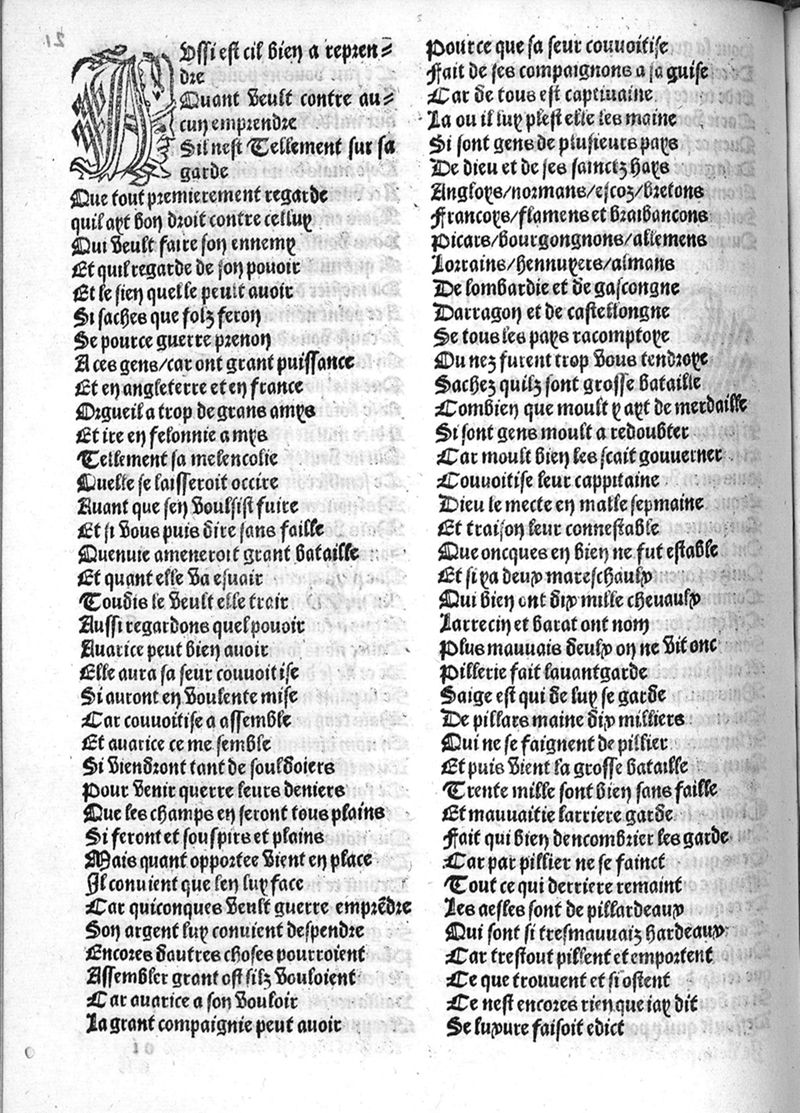 AUssi est cil bien a repren=
dre
Quant veult contre au=
cun emprendre
Sil nest Tellement sur sa
garde
Que tout premierement regarde
quil ayt bon droit contre celluy
Qui veult faire son ennemy
Et quil regarde de son pouoir
Et le sien quelle peult auoir
Si saches que folz feron
Se pource guerre prenon
A ces gens/car ont grant puissance
Et en angleterre et en france
Orgueil a trop de grans amys
Et ire en felonnie a mys
Tellement sa melencolie
Quelle se laisseroit occire
Auant que sen voulsist fuire
Et si vous puis dire sans faille
Quenuie ameneroit grant bataille
Et quant elle va esuair
Toudis le veult elle trair
Aussi regardons quel pouoir
Auarice peut bien auoir
Elle aura sa seur couuoitise
Si auront en voulente mise
Car couuoitise a assemble
Et auarice ce me semble
Si viendront tant de souldoiers
Pour venir querre leurs deniers
Que les champs en seront tous plains
Si feront et souspirs et plains
Mais quant opportee vient en place
Il conuient que len luy face
Car quiconques veult guerre emprēdre
Son argent luy conuient despendre
Encores dautres choses pourroient
Assembler grant ost silz vouloient
Car auarice a son vouloir
La grant compaignie peut auoir
Pource que sa seur couuoitise
Fait de ses compaignons a sa guise
Car de tous est captiuaine
La ou il luy plest elle les maine
Si sont gens de plusieurs pays
De dieu et de ses sainctz hays
Angloys/normans/escoz/bretons
Francoys/flamens et braibancons
Picars/bourgongnons/allemens
Lorrains/hennuyers/almans
De lombardie et de gascongne
Darragon et de castellongne
Se tous les pays racomptoye
Ou nez furent trop vous tendroye
Sachez quilz sont grosse bataille
Combien que moult y ayt de merdaille
Si sont gens moult a redoubter
Car moult bien les scait gouuerner
Couuoitise leur cappitaine
Dieu le mecte en malle sepmaine
Et traison leur connestable
Que oncques en bien ne fut estable
Et si ya deux mareschaulx
Qui bien ont dix mille cheuaulx
Larrecin et barat ont nom
Plus mauuais deulx on ne vit onc
Pillerie fait lauantgarde
Saige est qui de luy se garde
De pillars maine dix milliers
Qui ne se faignent de pillier
Et puis vient la grosse bataille
Trente mille sont bien sans faille
Et mauuaitie larriere garde
Fait qui bien dencombrier les garde
Car par pillier ne se fainct
Tout ce qui derriere remaint
Les aesles sont de pillardeaux
Qui sont si tresmauuaiz hardeaux
Car trestout pillent et emportent
Ce que trouuent et si ostent
Ce nest encores rien que iay dit
Se luxure faisoit edict